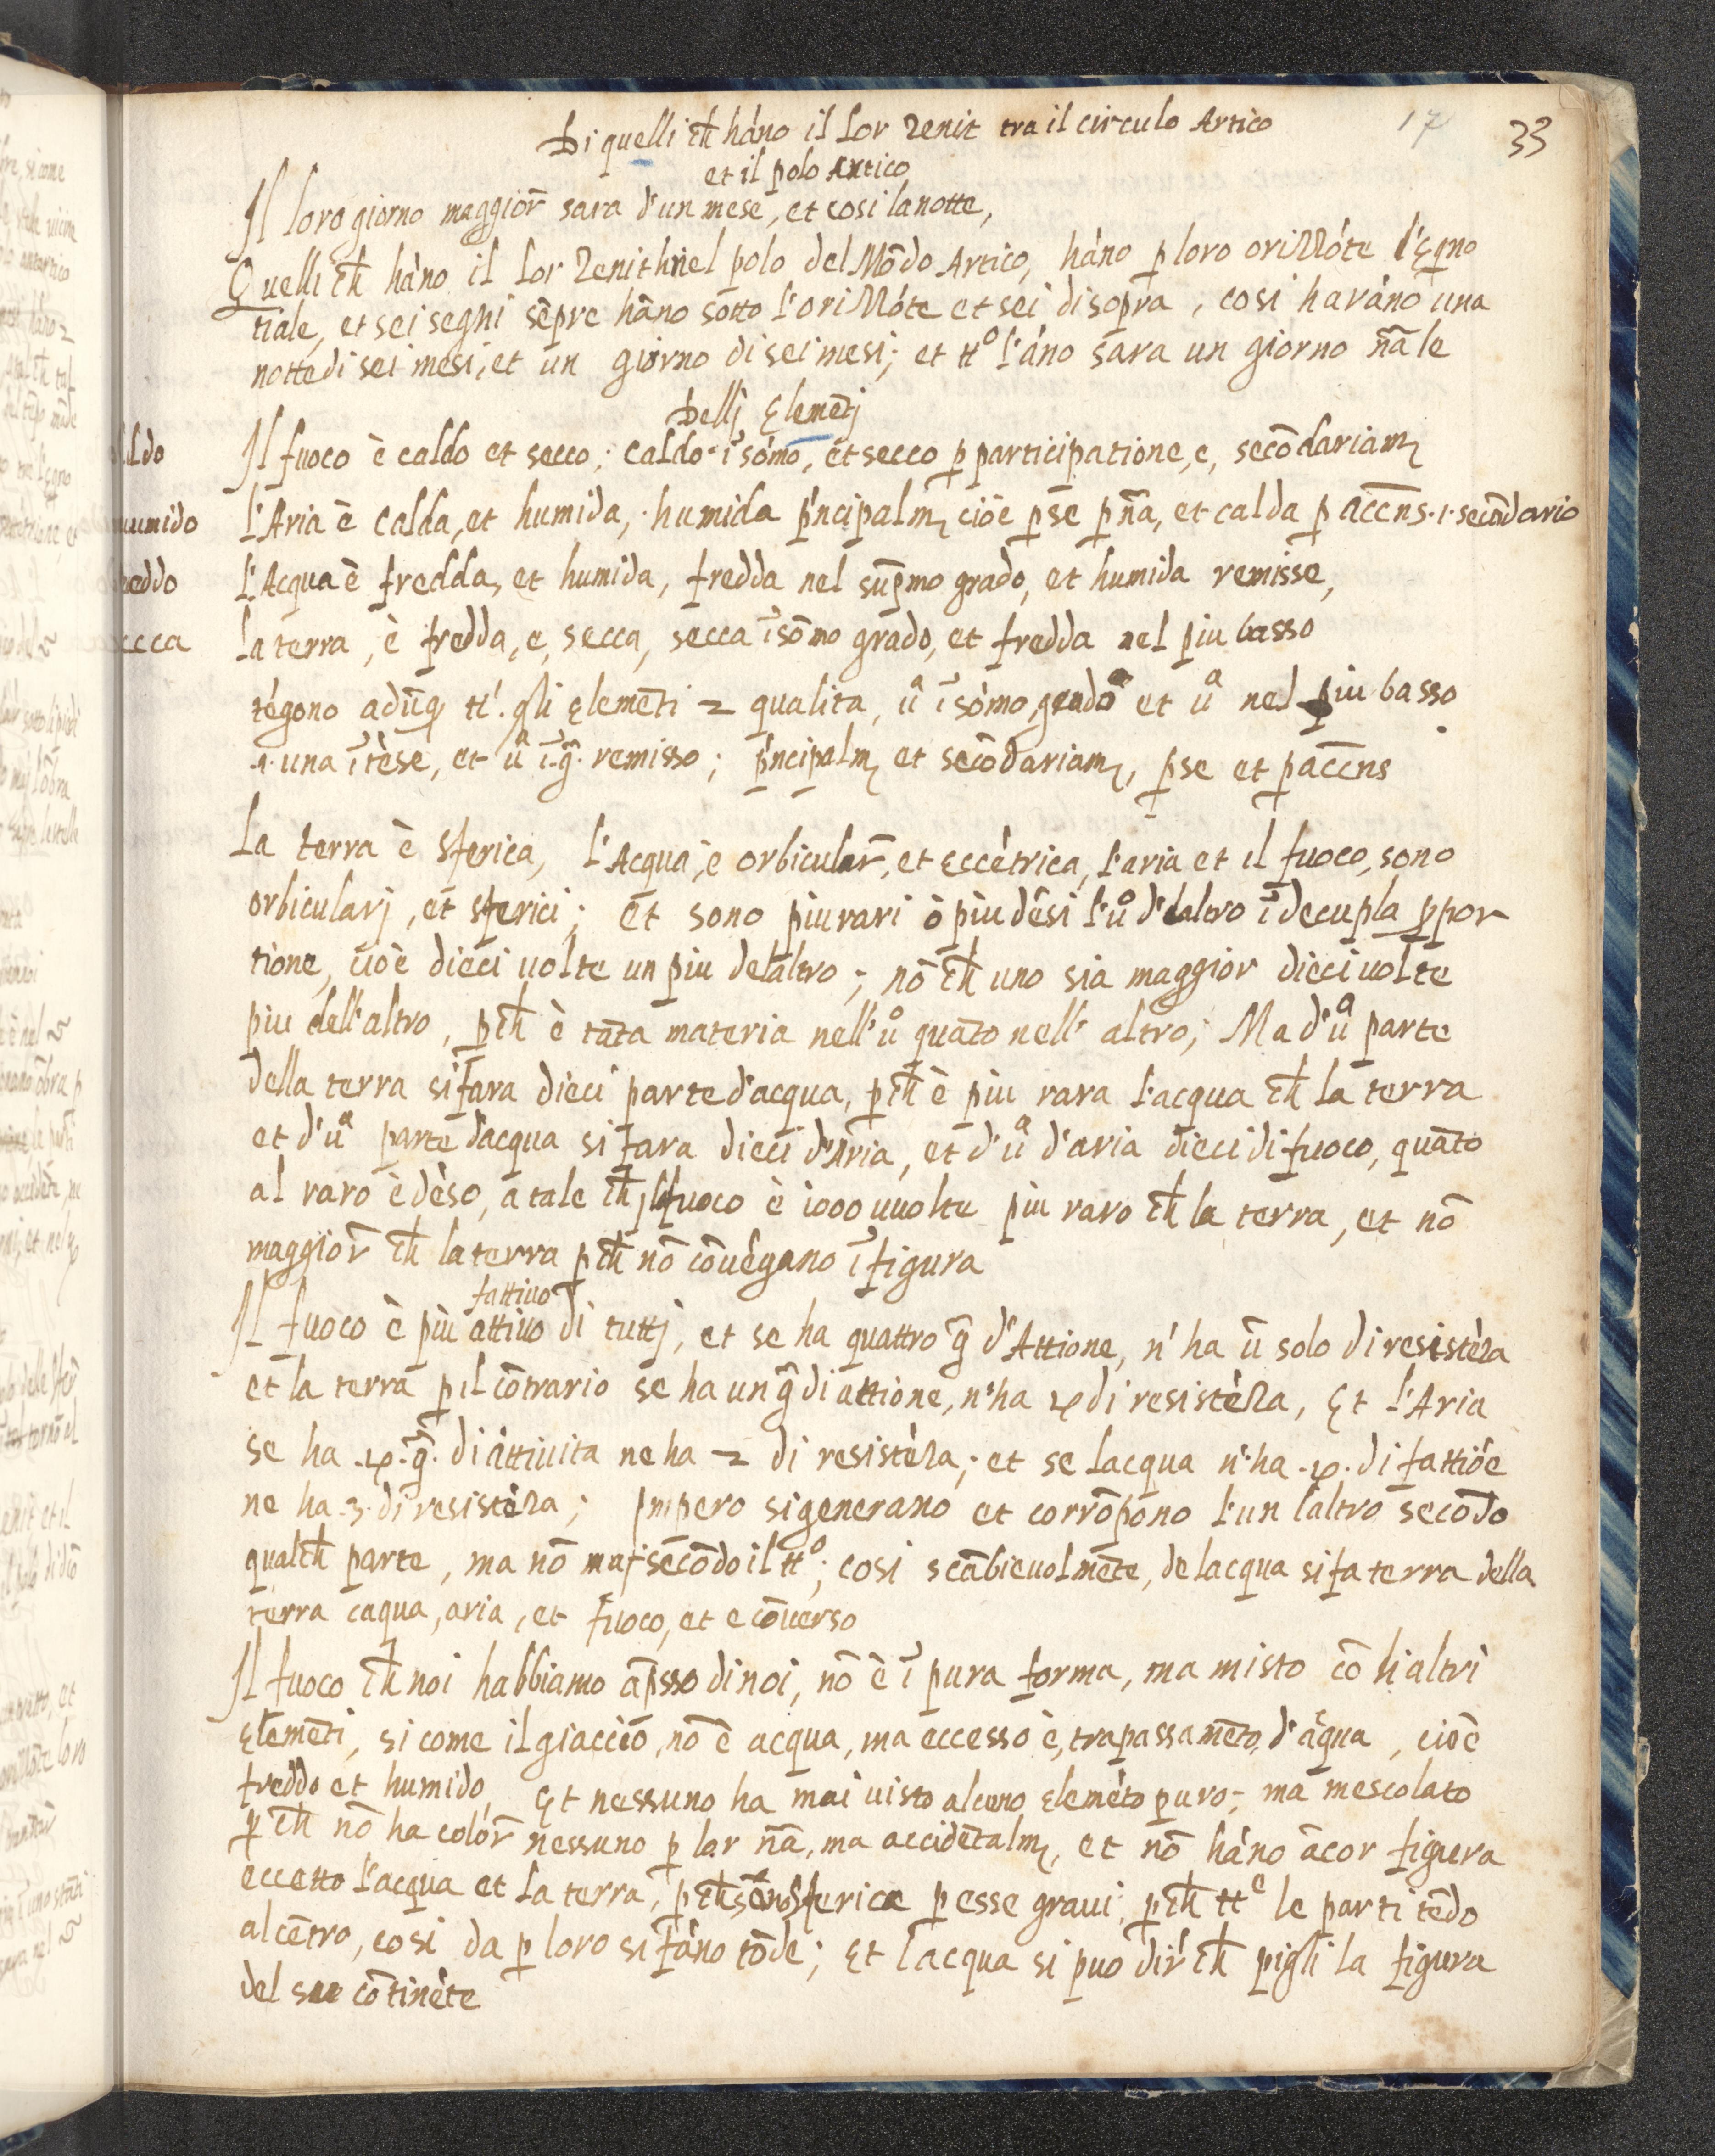 Di quelli ch̄ háno il lor zenit tra il circulo Artico 17 33
et il polo Artico
Il loro giorno maggior̄ sara d'un mese, et cosi la notte,
Quelli ch̄ háno il lor zenith nel polo del Mōdo Artico, háno ꝑ loro orizzóte l'Eqno
tiale, et sei segni sēpre hāno sotto l'orizzóte et sei di sopra, cosi haráno una
notte di sei mesi, et un giorno di sei mesi; et ttº l'áno sara un giorno n̄ale
Dellj Elemētj
Il fuoco è caldo et secco; caldo ī sómo, et secco ꝑ participatione, e, secōdariam̄
L'Aria è calda, et humida, humida p'ncipalm̄ cioè ꝑ se ꝑ n̄a, et calda ꝑ accēns .i. secōdario
L'Acqua è fredda, et humida, fredda nel sup̄mo grado, et humida remisse,
La terra, è fredda, e, secca, secca ī sōmo grado, et fredda nel piu basso
tégono adūq tt'. gli Elemēti 2 qualita, ūª ī sómo grado et ūª nel piu basso
.i. una ītèse, et ūª ī g̃. remisso; p'ncipalm̄ et secōdariam̄, ꝑ se et ꝑ accēns
La terra è sferica, l'Acqua, è orbicular̄, et eccétrica, l'aria et il fuoco, sono
orbicularj, et sferici; et sono piu rari ò piu dēsi l'ūº d'laltro ī decupla ꝓpor
tione, cioè dieci uolte un piu delaltro; nō ch̄ uno sia maggior dieci uolte
piu dell'altro, ꝑch̄ è tāta materia nell'ūº quāto nell'altro; Ma d'ūª parte
della terra si fara dieci parte d'acqua, ꝑch̄ è piu rara l'acqua ch̄ la terra
et d'ūª parte d'acqua si fara dieci d'Aria, et d'ūª d'aria dieci di fuoco, quāto
al raro è dèso, a tale ch̄ il fuoco è 1000 uuolte piu raro ch̄ la terra, et nō
maggior̄ ch̄ la terra ꝑch̄ nō cōuégano ī figura
fattiuo
Il fuoco è piu attiuo di tuttj, et se ha quattro g̃ d'Attione, n'ha ū solo di resistèza
et la terra ꝑ il cōtrario se ha un g̃ di attione, n'ha 4 di resistèza, Et l'Aria
se ha .4. g̃. di attiuita ne ha 2 di resistèza; et se lacqua n'ha .4. di fattióe
ne ha 3. di resistèza; Impero si generano et corrōpono l'un laltro secōdo
qualch̄ parte, ma nō maj secōdo il ttº; cosi scābieuolmēte, de lacqua si fa terra della
terra caqua, aria, et fuoco, et e cōuerso
Il fuoco ch̄ noi habbiamo āp̄sso di noi, nō è ī pura forma, ma misto cō li altri
Elemēti, si come il giaccio, nō è acqua, ma eccesso è, trapassamēto d'aqua, cioè
freddo et humido, Et nessuno ha mai uisto alcuno Eleméto puro; ma mescolato
ꝑch̄ nō ha color̄ nessuno ꝑ lor n̄a, ma accidētalm̄, et nō háno ācor figura
eccetto l'acqua et la terra, ꝑch̄ sono sferice ꝑ esse graui; ꝑch̄ ttᵉ le parti tēdo
al cētro, cosi da ꝑ loro si fáno tōde; Et lacqua si puo dir̄ ch̄ pigli la figura
del suo cōtinéte